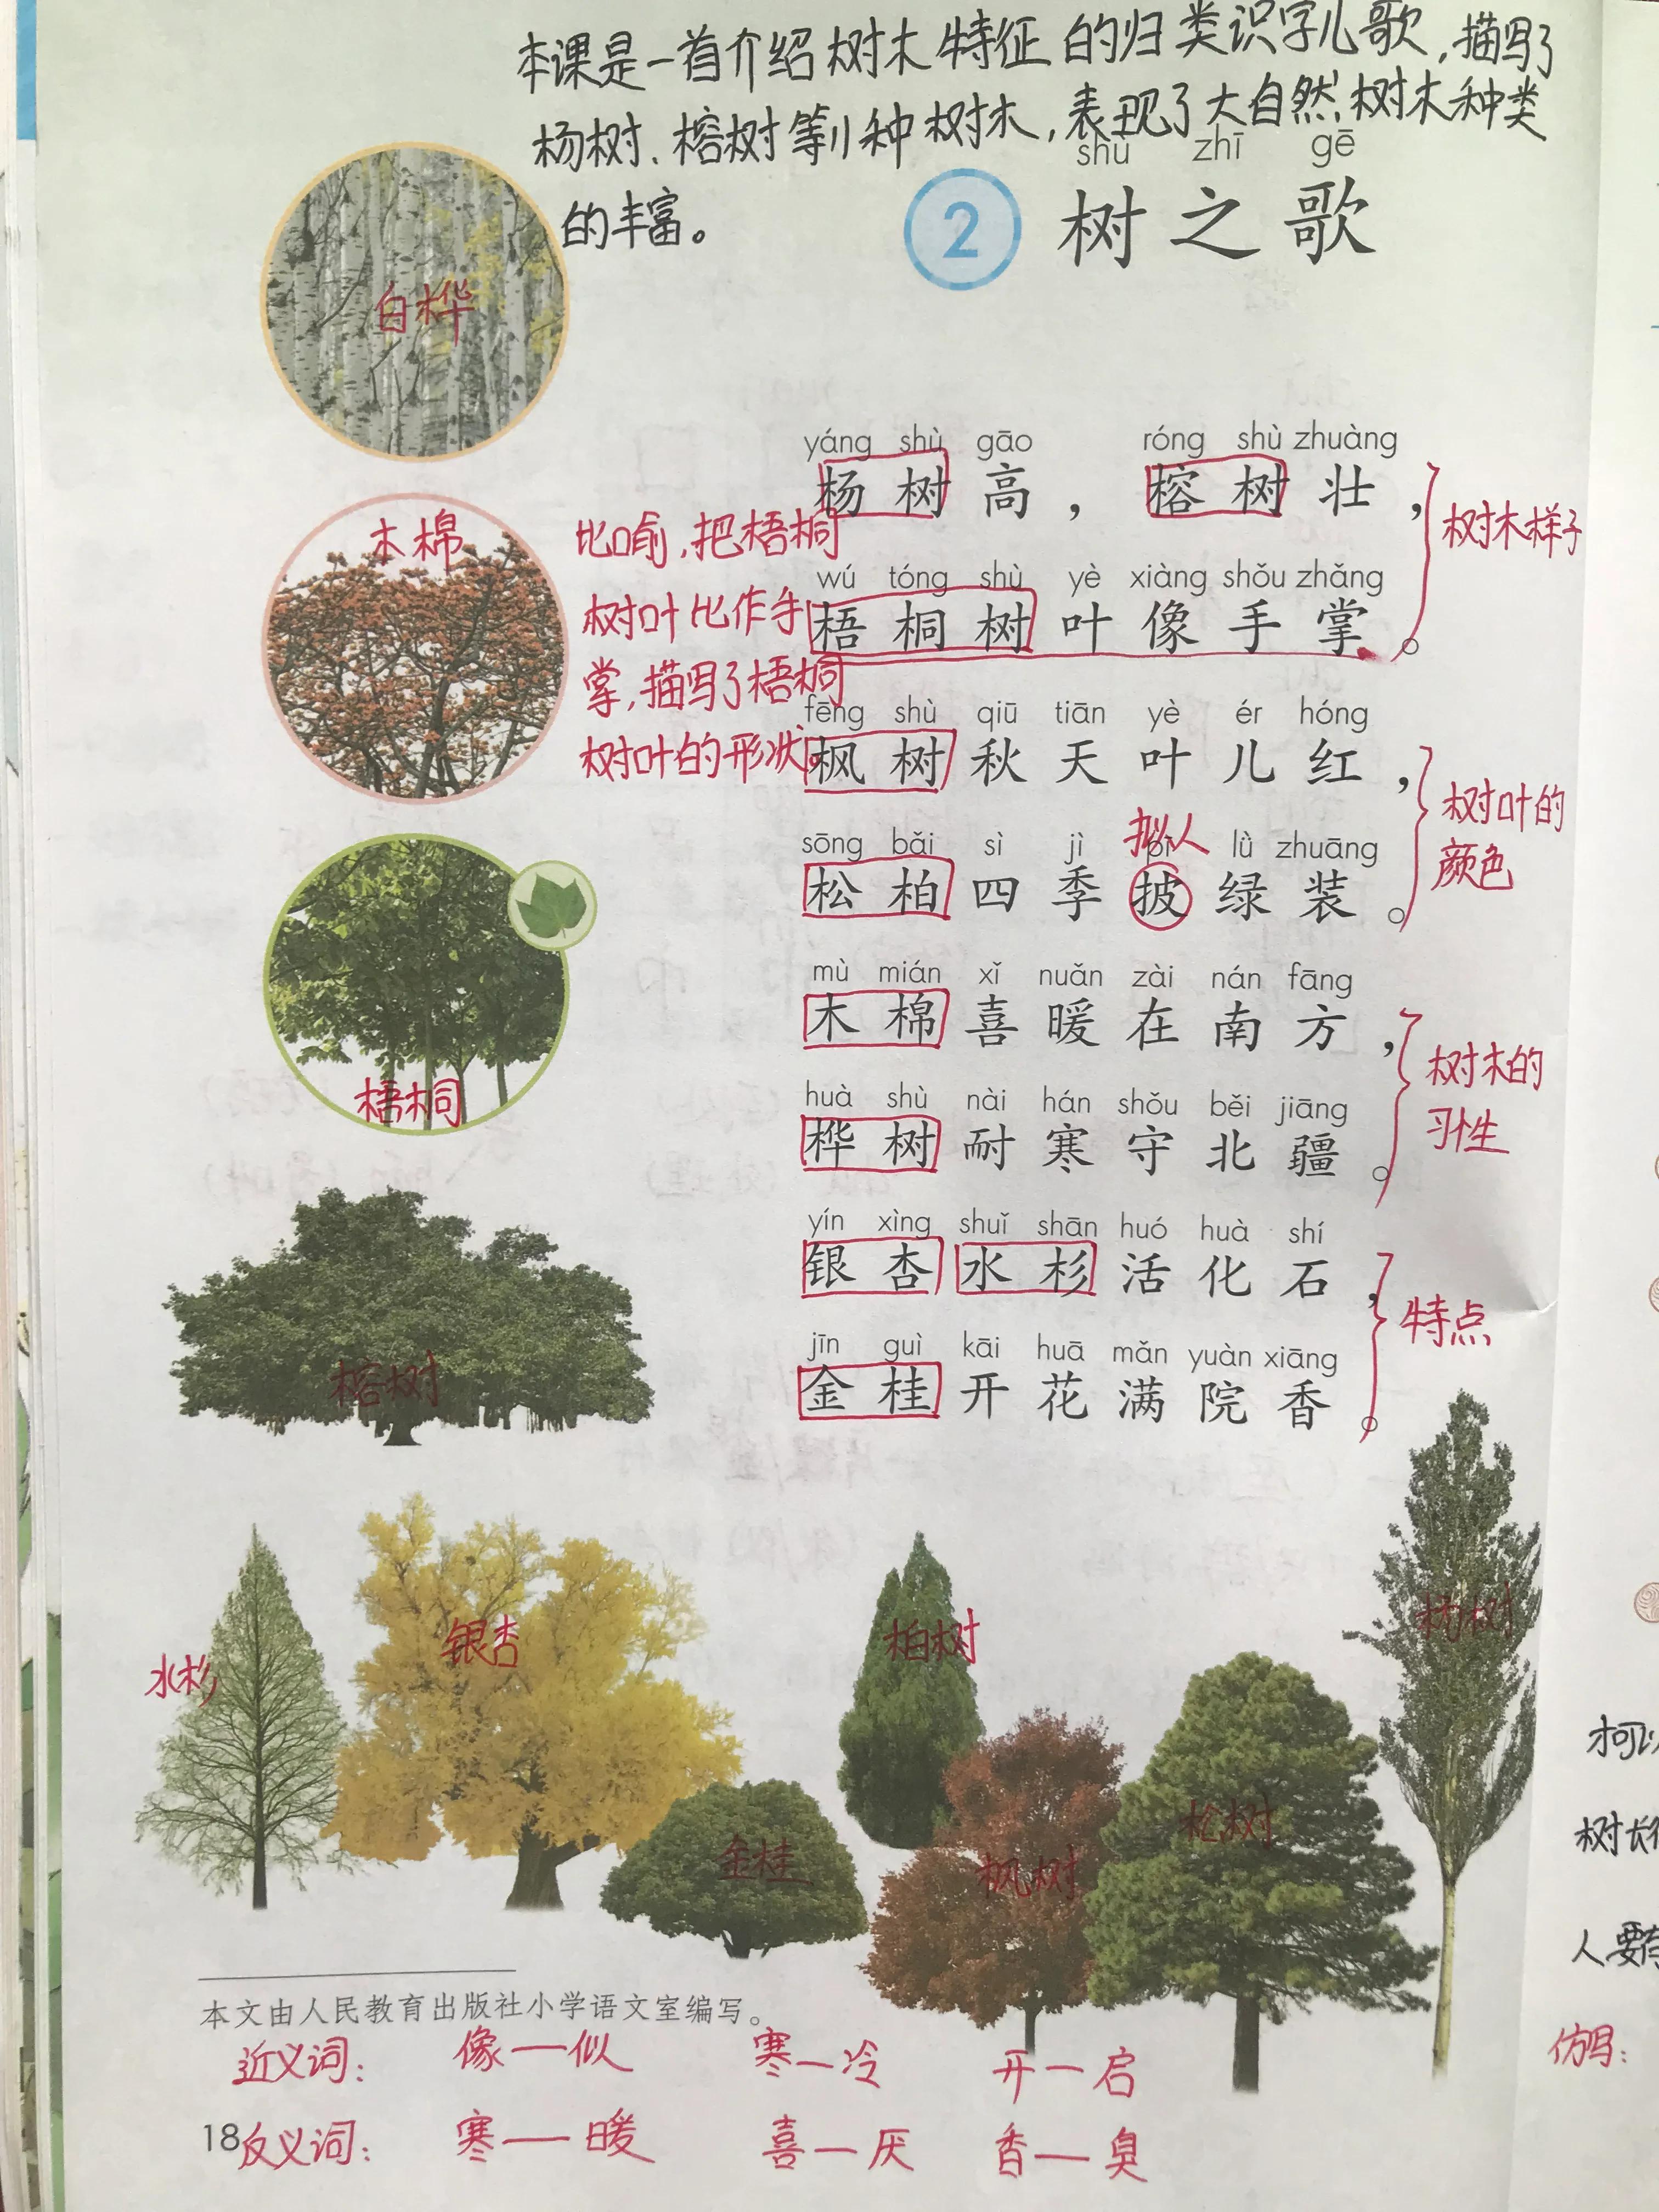 本课是一首介绍树木特征的归类识字儿歌,描写了
杨树、榕树等11种树木,表现了大自然树木种类
的丰富。
shù zhī gē
2 树之歌
白桦
木棉
梧桐
榕树
比喻,把梧桐
树叶比作手
掌,描写了梧桐
树叶的形状。
yáng shù gāo róng shù zhuàng
杨树高,榕树壮,
wú tóng shù yè xiàng shǒu zhǎng
梧桐树叶像手掌。
树木样子
fēng shù qiū tiān yè ér hóng
枫树秋天叶儿红,
拟人
sōng bǎi sì jì pī lǜ zhuāng
松柏四季披绿装。
树叶的
颜色
mù mián xǐ nuǎn zài nán fāng
木棉喜暖在南方,
huà shù nài hán shǒu běi jiāng
桦树耐寒守北疆。
树木的
习性
yín xìng shuǐ shān huó huà shí
银杏水杉活化石,
jīn guì kāi huā mǎn yuàn xiāng
金桂开花满院香。
特点
水杉
银杏
柏树
杨树
金桂
枫树
松树
本文由人民教育出版社小学语文室编写。
近义词: 像—似 寒—冷 开—启
18
反义词: 寒—暖 喜—厌 香—臭
可以
树长
人要
仿写: